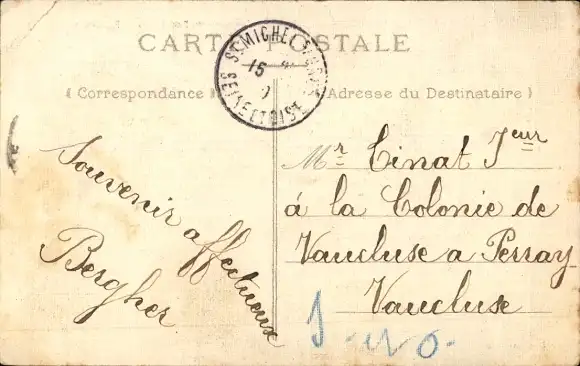 CARTE POSTALE
ST MICHEL S/ ORGE
15
SEINE ET OISE
( Correspondance )
Adresse du Destinataire )
Souvenir affectueux
Bergher
Mr Cinat Jeur
à la Colonie de
Vaucluse a Perray
Vaucluse